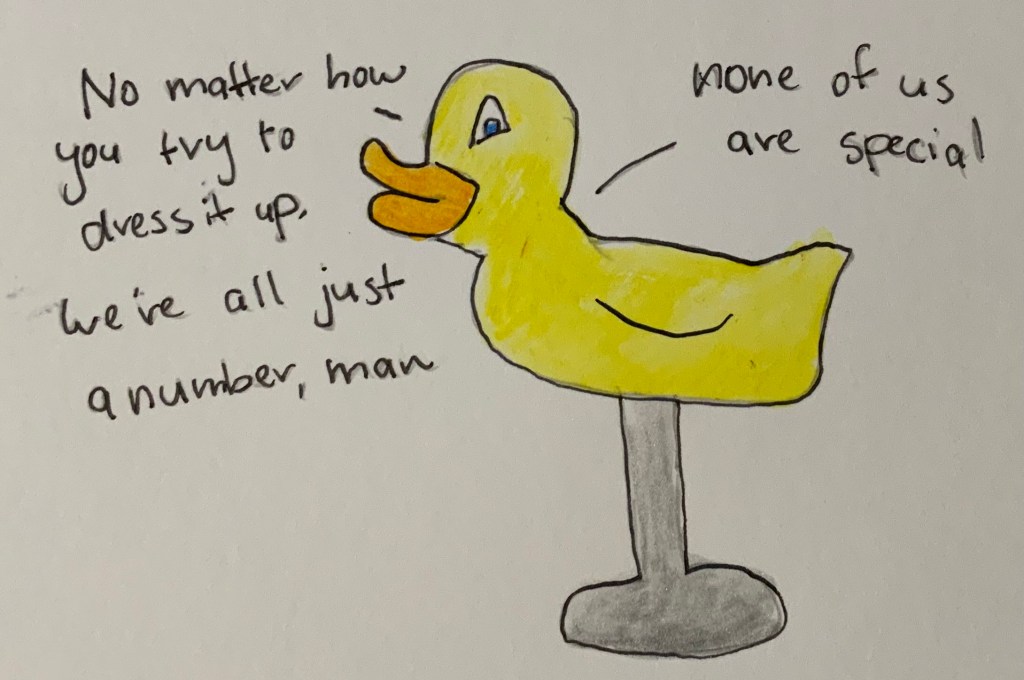 No matter how
you try to
dress it up,
we're all just
a number, man
none of us
are special